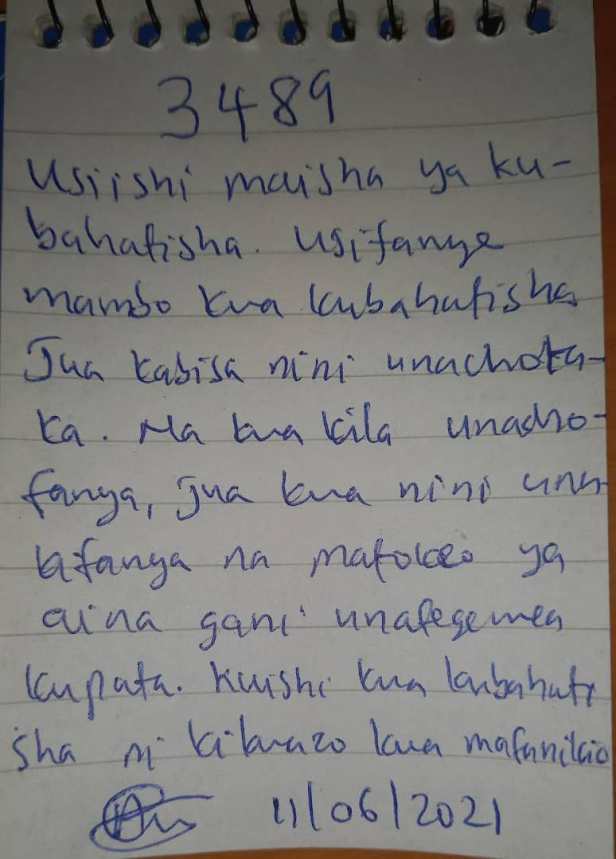 3489
Usiishi maisha ya ku-
bahatisha. Usifanye
mambo kwa kubahatisha
Jua kabisa nini unachota-
ka. Na kwa kila unacho-
fanya, jua kwa nini una-
kifanya na matokeo ya
aina gani unategemea
kupata. Kuishi kwa kubahati
sha ni kikwazo kwa mafanikio
11/06/2021